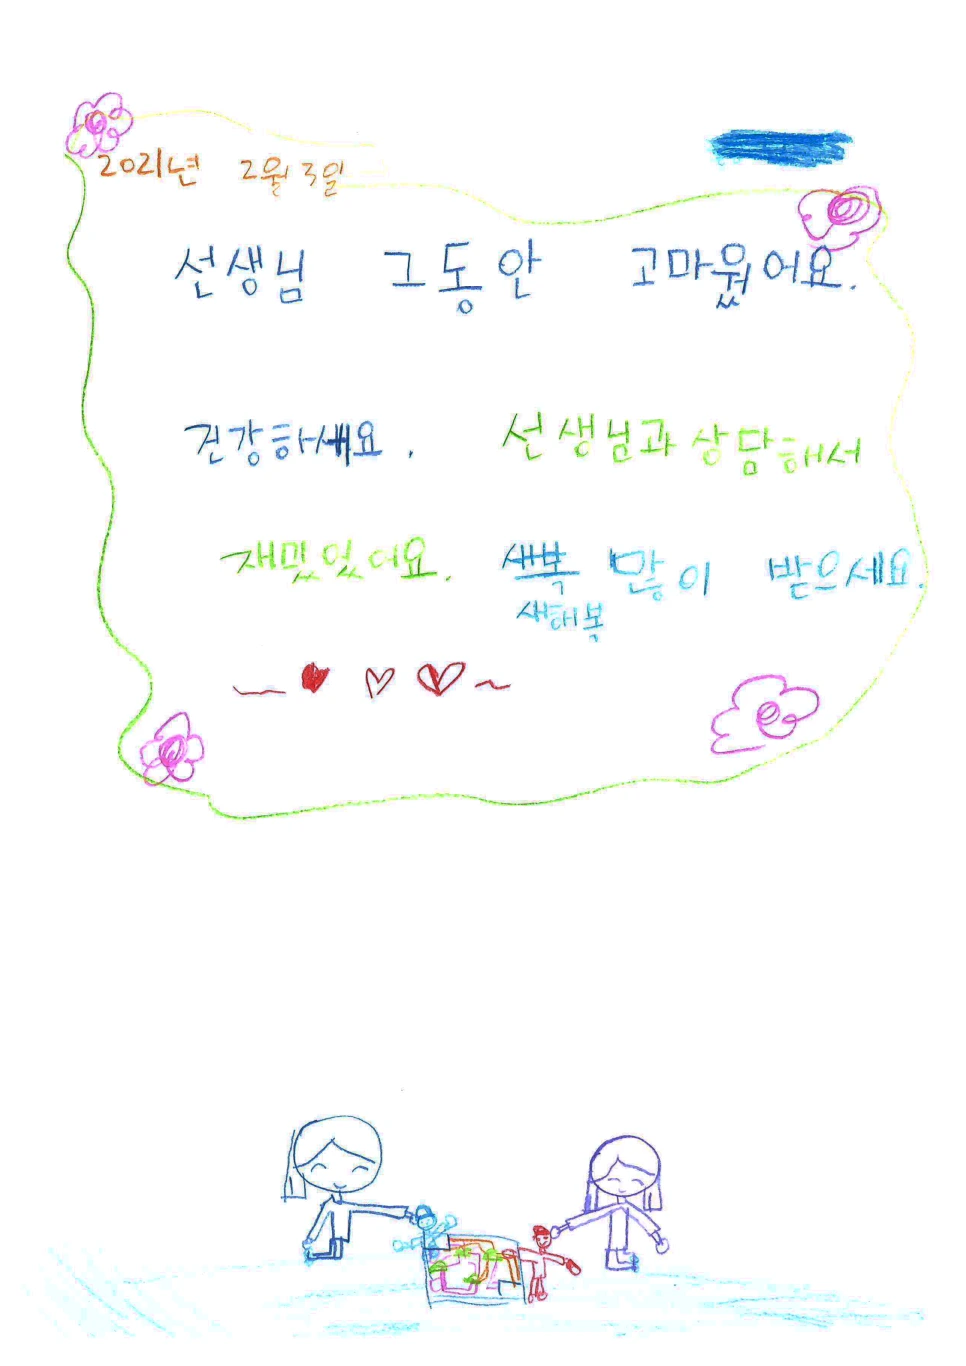 2021년 2월 3일
선생님 그동안 고마웠어요.
건강하세요. 선생님과 상담해서
재밌었어요. 새복 많이 받으세요.
새해복